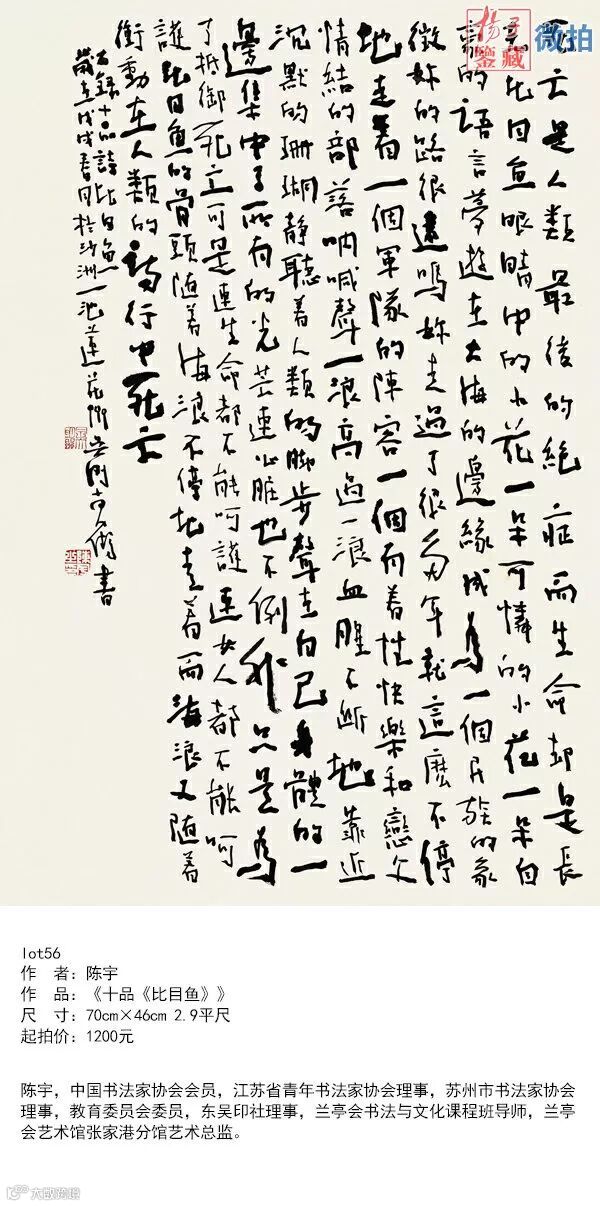 死亡是人類最後的絶症而生命却是長
在比目魚眼睛中的小花一朵可憐的小花一朵自
的語言夢遊在大海的邊緣成為一個民族的象
徵妳的路很遠嗎妳走過了很多年就這麼不停
地走着一個軍隊的陣容一個有着性快樂和戀父
情結的部落吶喊聲一浪高過一浪血腥不斷地靠近
沉默的珊瑚静聽着人類的脚步聲在自己身體的一
邊集中了所有的光芒連心脏也不例外只是為
了抵御死亡可是連生命都不能呵護連女人都不能呵
護比目魚的骨頭随着海浪不停地走着而海浪又随着
衝動在人類的詩行中死亡
右録十品詩比目魚
歲在戊戌春月於沙洲一池蓮花
陳宇書
揚子
鑒藏
微拍
lot56
作 者：陈宇
作 品：《十品《比目鱼》》
尺 寸：70cm×46cm 2.9平尺
起拍价：1200元
陈宇，中国书法家协会会员，江苏省青年书法家协会理事，苏州市书法家协会
理事，教育委员会委员，东吴印社理事，兰亭会书法与文化课程班导师，兰亭
会艺术馆张家港分馆艺术总监。
大欧跨境